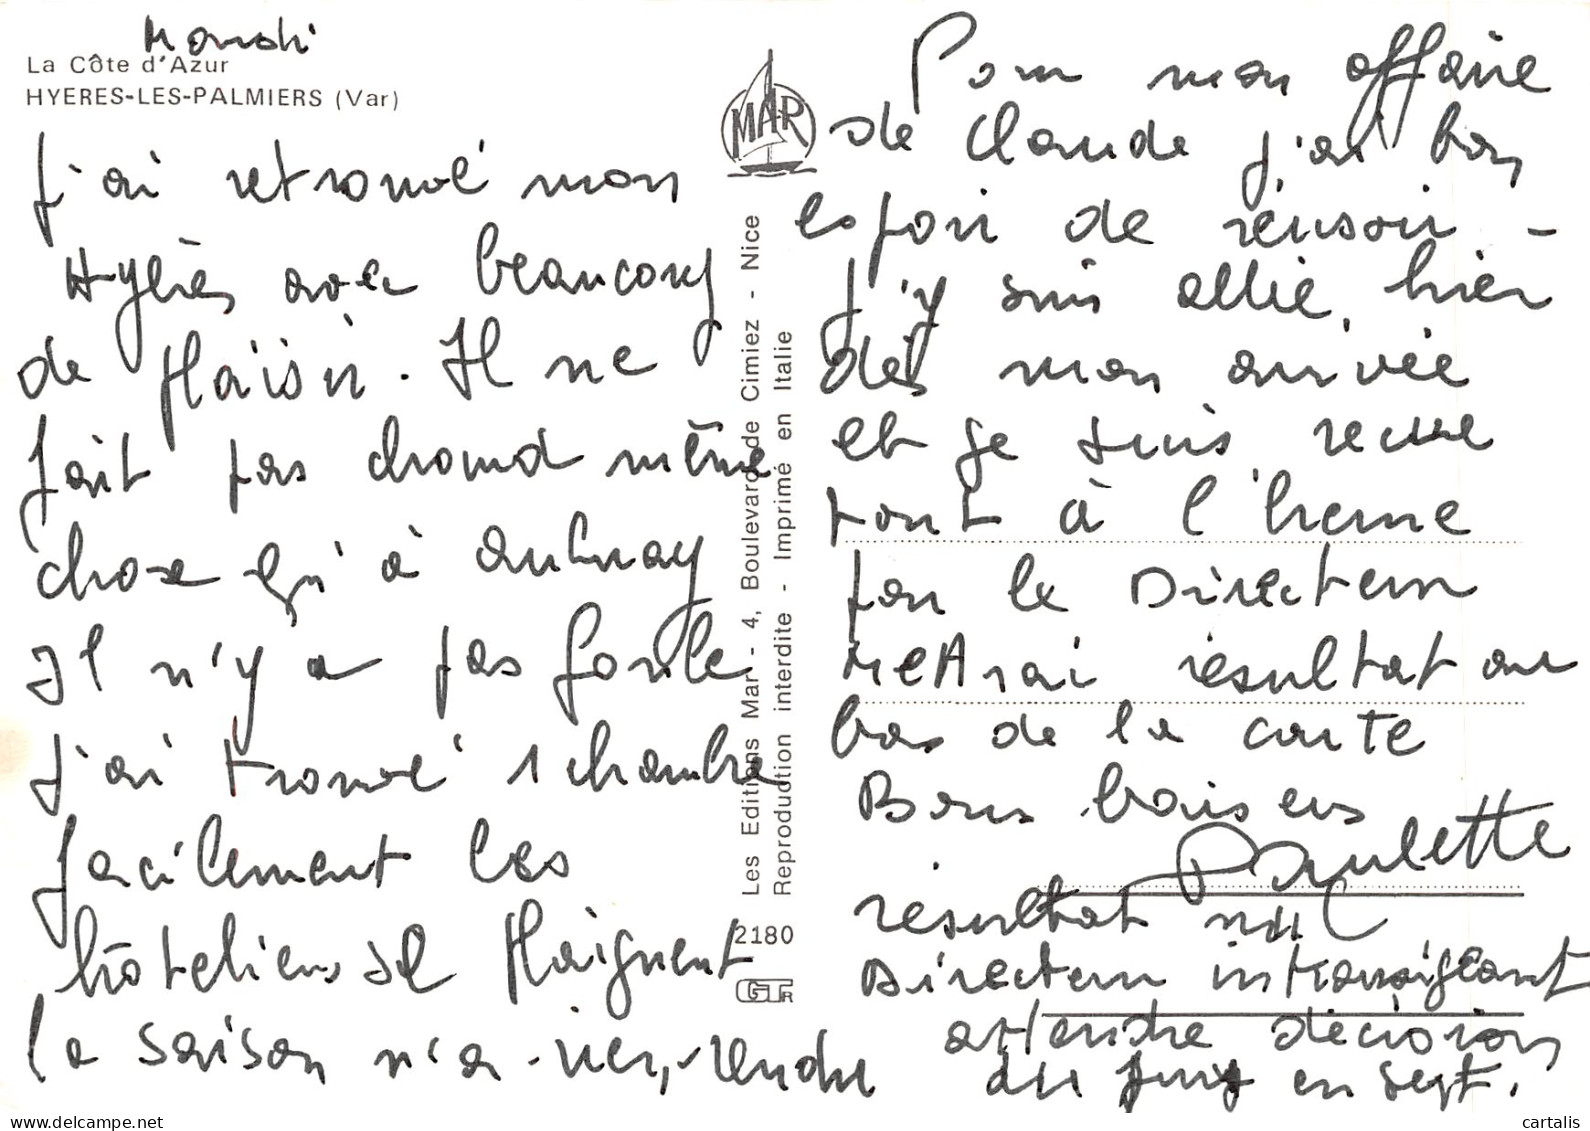 Mardi
La Côte d'Azur
HYERES-LES-PALMIERS (Var)
J'ai retrouvé mon
Hyères avec beaucoup
de plaisir. Il ne
fait pas chaud même
chose qu'à Aulnay
Il n'y a pas foule
J'ai trouvé 1 chambre
facilement les
hôteliers se plaignent
la saison n'a rien rendu
MAR
Les Editions Mar - 4, Boulevard de Cimiez - Nice
Reproduction interdite - Imprimé en Italie
2180
Pour mon affaire
de Claude j'ai bon
espoir de réussir -
J'y suis allée hier
dès mon arrivée
et je suis reçue
tout à l'heure
par le Directeur
Mettrai résultat au
bas de la carte
Bons baisers
Paulette
résultat nul
Directeur intransigeant
attendre décision
du jury en sept.